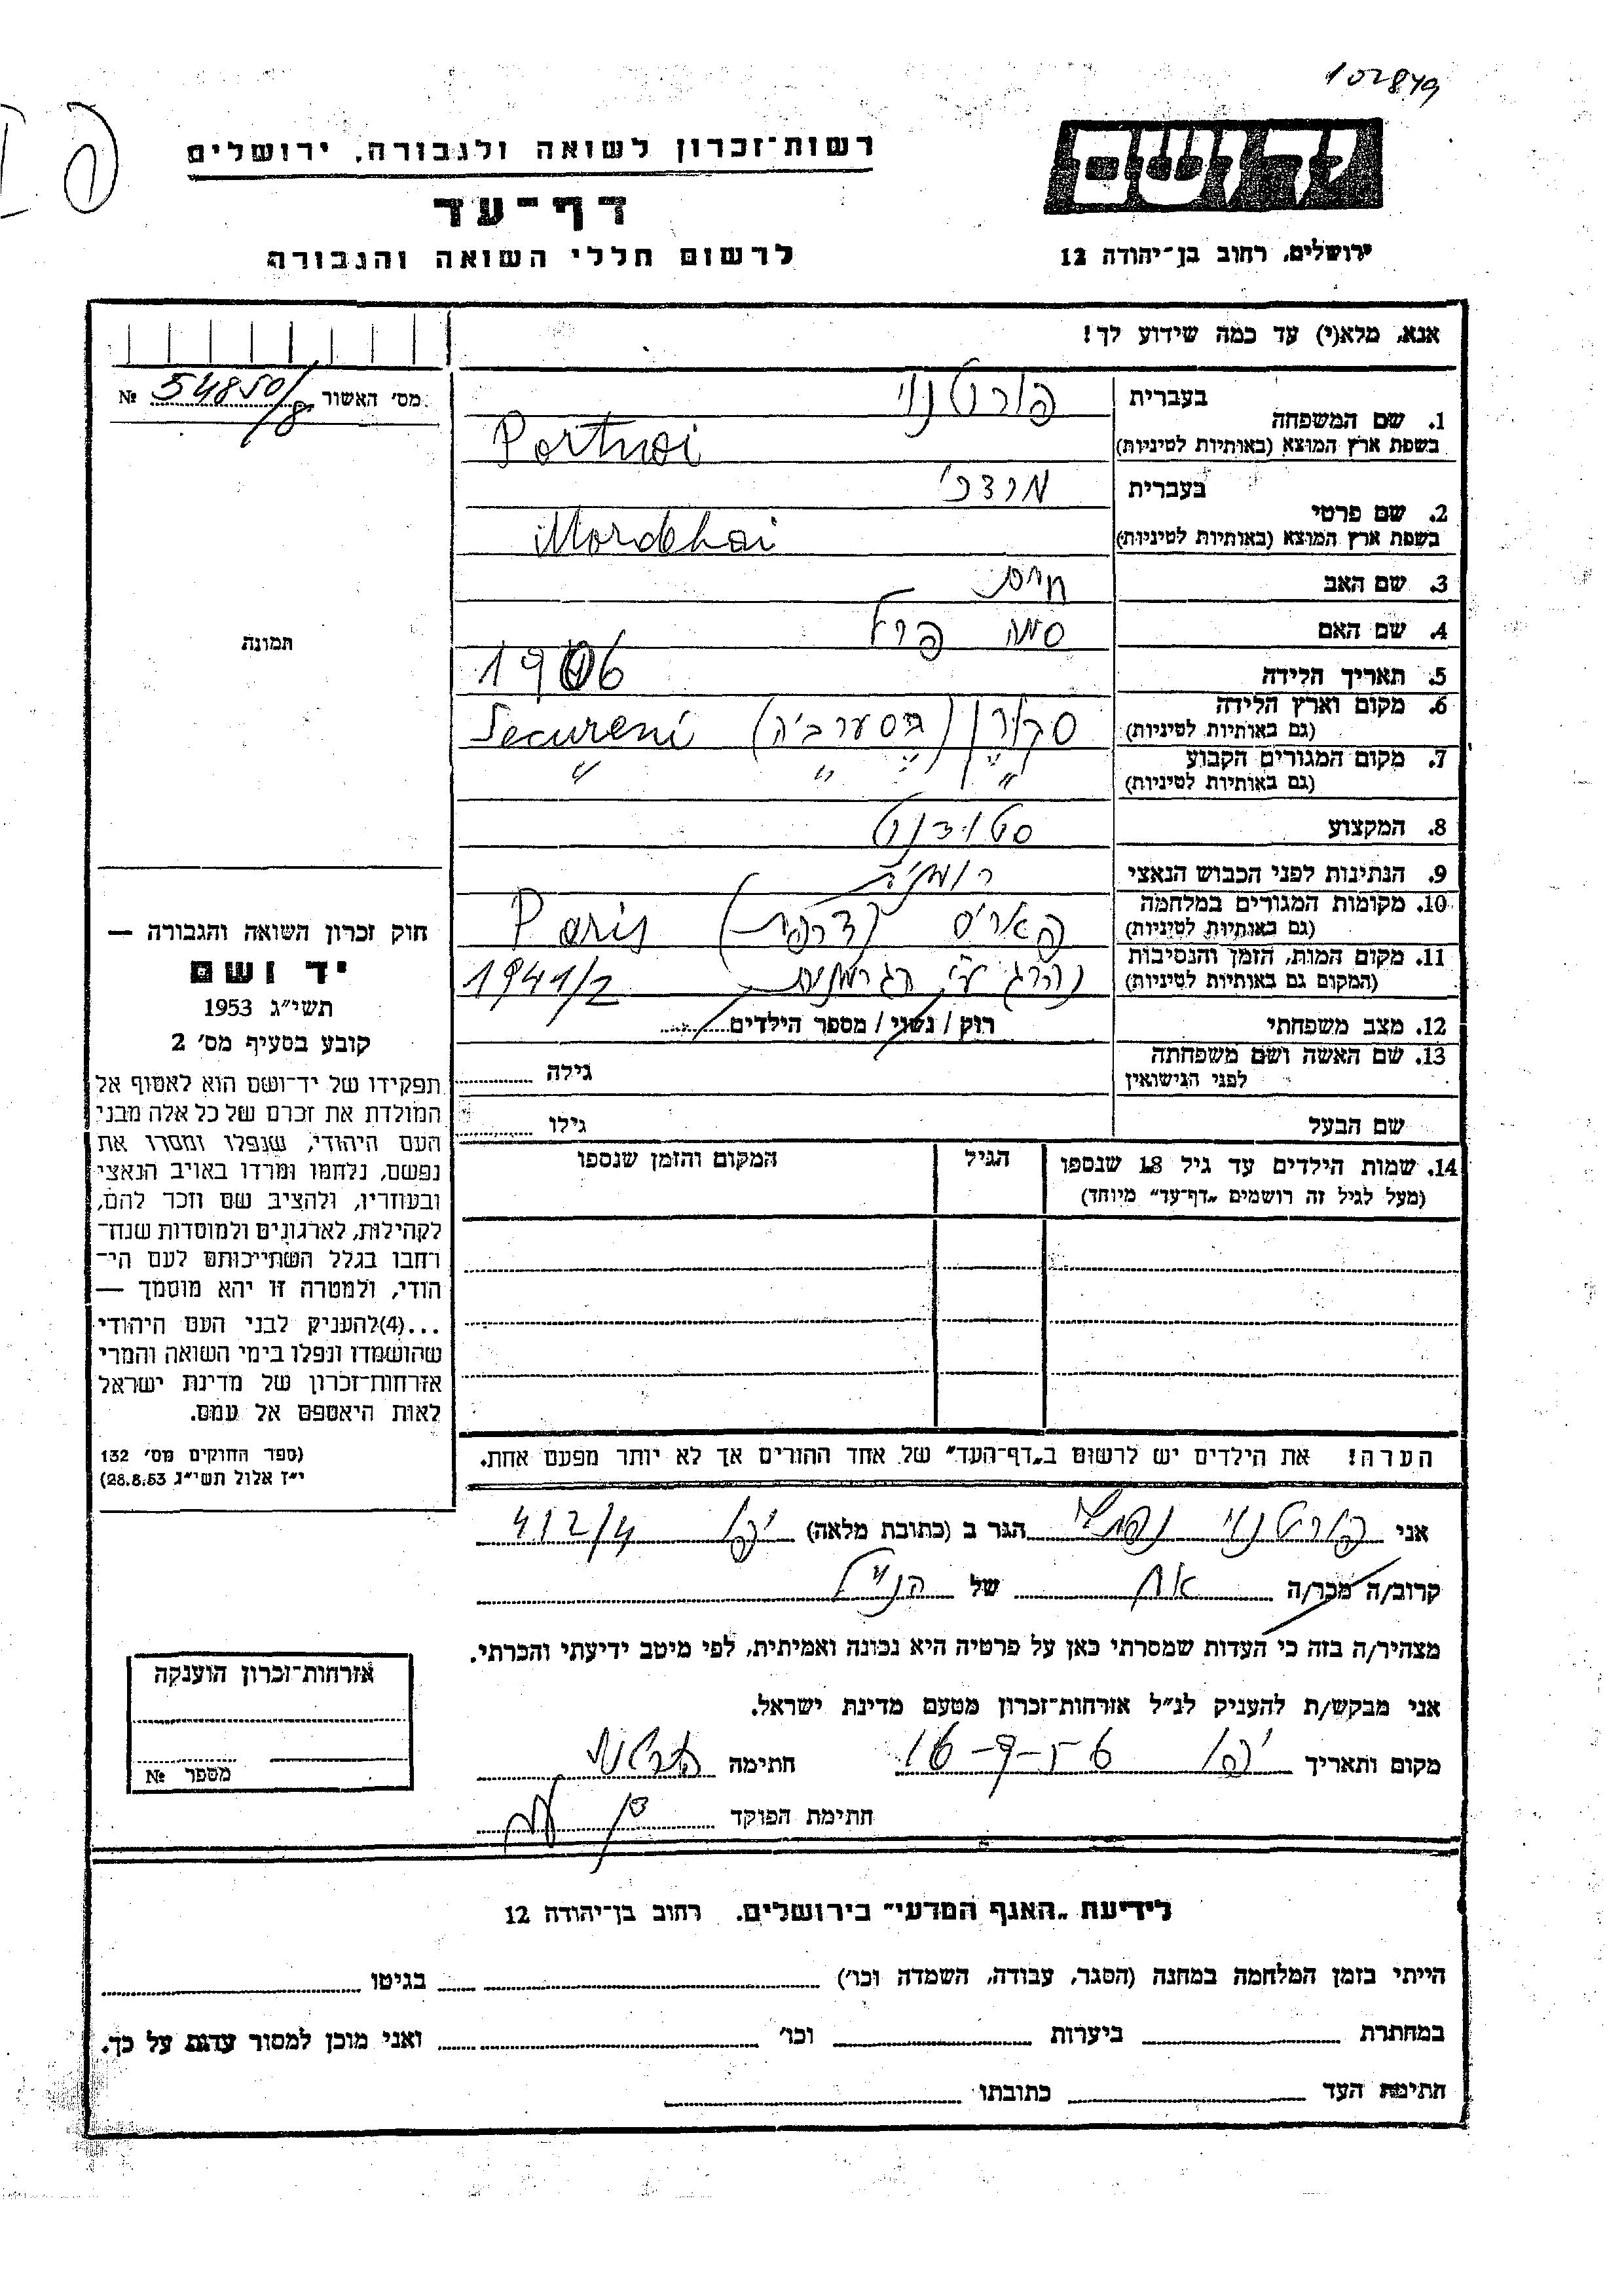 102879
רשות־זכרון לשואה ולגבורה, ירושלים
יד ושם
דף־עד
לרשום חללי השואה והגבורה
ירושלים, רחוב בן־יהודה 12
אנא, מלא(י) עד כמה שידוע לך!
מס׳ האשור 54850/8 №
בעברית פורטנוי
1. שם המשפחה
בשפת ארץ המוצא (באותיות לטיניות) Portnoi
בעברית מרדכי
2. שם פרטי
בשפת ארץ המוצא (באותיות לטיניות) Mordehai
3. שם האב חיים
4. שם האם סימה פרל
5. תאריך הלידה 1906
6. מקום וארץ הלידה
(גם באותיות לטיניות) סקורן (בסערביה) Secureni
7. מקום המגורים הקבוע
(גם באותיות לטיניות) " " " "
8. המקצוע סטודנט
9. הנתינות לפני הכבוש הנאצי רומניה
10. מקומות המגורים במלחמה
(גם באותיות לטיניות) פאריס (צרפת) Paris
11. מקום המות, הזמן והנסיבות
(המקום גם באותיות לטיניות) נהרג ע״י הגרמנים 1941/2
12. מצב משפחתי רוק / נשוי / מספר הילדים
13. שם האשה ושם משפחתה
לפני הנישואין גילה
שם הבעל גילו
14. שמות הילדים עד גיל 18 שנספו הגיל המקום והזמן שנספו
(מעל לגיל זה רושמים „דף־עד״ מיוחד)
הערה! את הילדים יש לרשום ב„דף־העד״ של אחד ההורים אך לא יותר מפעם אחת.
תמונה
חוק זכרון השואה והגבורה —
יד ושם
תשי״ג 1953
קובע בסעיף מס׳ 2
תפקידו של יד־ושם הוא לאסוף אל
המולדת את זכרם של כל אלה מבני
העם היהודי, שנפלו ומסרו את
נפשם, נלחמו ומרדו באויב הנאצי
ובעוזריו, ולהציב שם וזכר להם,
לקהילות, לארגונים ולמוסדות שנח־
רחבו בגלל השתייכותם לעם הי־
הודי, ולמטרה זו יהא מוסמך —
...(4)להעניק לבני העם היהודי
שהושמדו ונפלו בימי השואה והמרי
אזרחות־זכרון של מדינת ישראל
לאות היאספם אל עמם.
(ספר החוקים מס׳ 132
י״ז אלול תשי״ג 28.8.53)
אני פורטנוי נפתלי הגר ב (כתובת מלאה) יפו 412/4
קרוב/ה מכר/ה אח של הנ״ל
מצהיר/ה בזה כי העדות שמסרתי כאן על פרטיה היא נכונה ואמיתית, לפי מיטב ידיעתי והכרתי.
אני מבקש/ת להעניק לנ״ל אזרחות־זכרון מטעם מדינת ישראל.
מקום ותאריך יפו 16-9-56 חתימה
חתימת הפוקד
אזרחות־זכרון הוענקה
מספר №
לידיעת „האגף המדעי״ בירושלים. רחוב בן־יהודה 12
הייתי בזמן המלחמה במחנה (הסגר, עבודה, השמדה וכו׳) בגיטו
במחתרת ביערות וכו׳ ואני מוכן למסור עדות על כך.
חתימת העד כתובתו